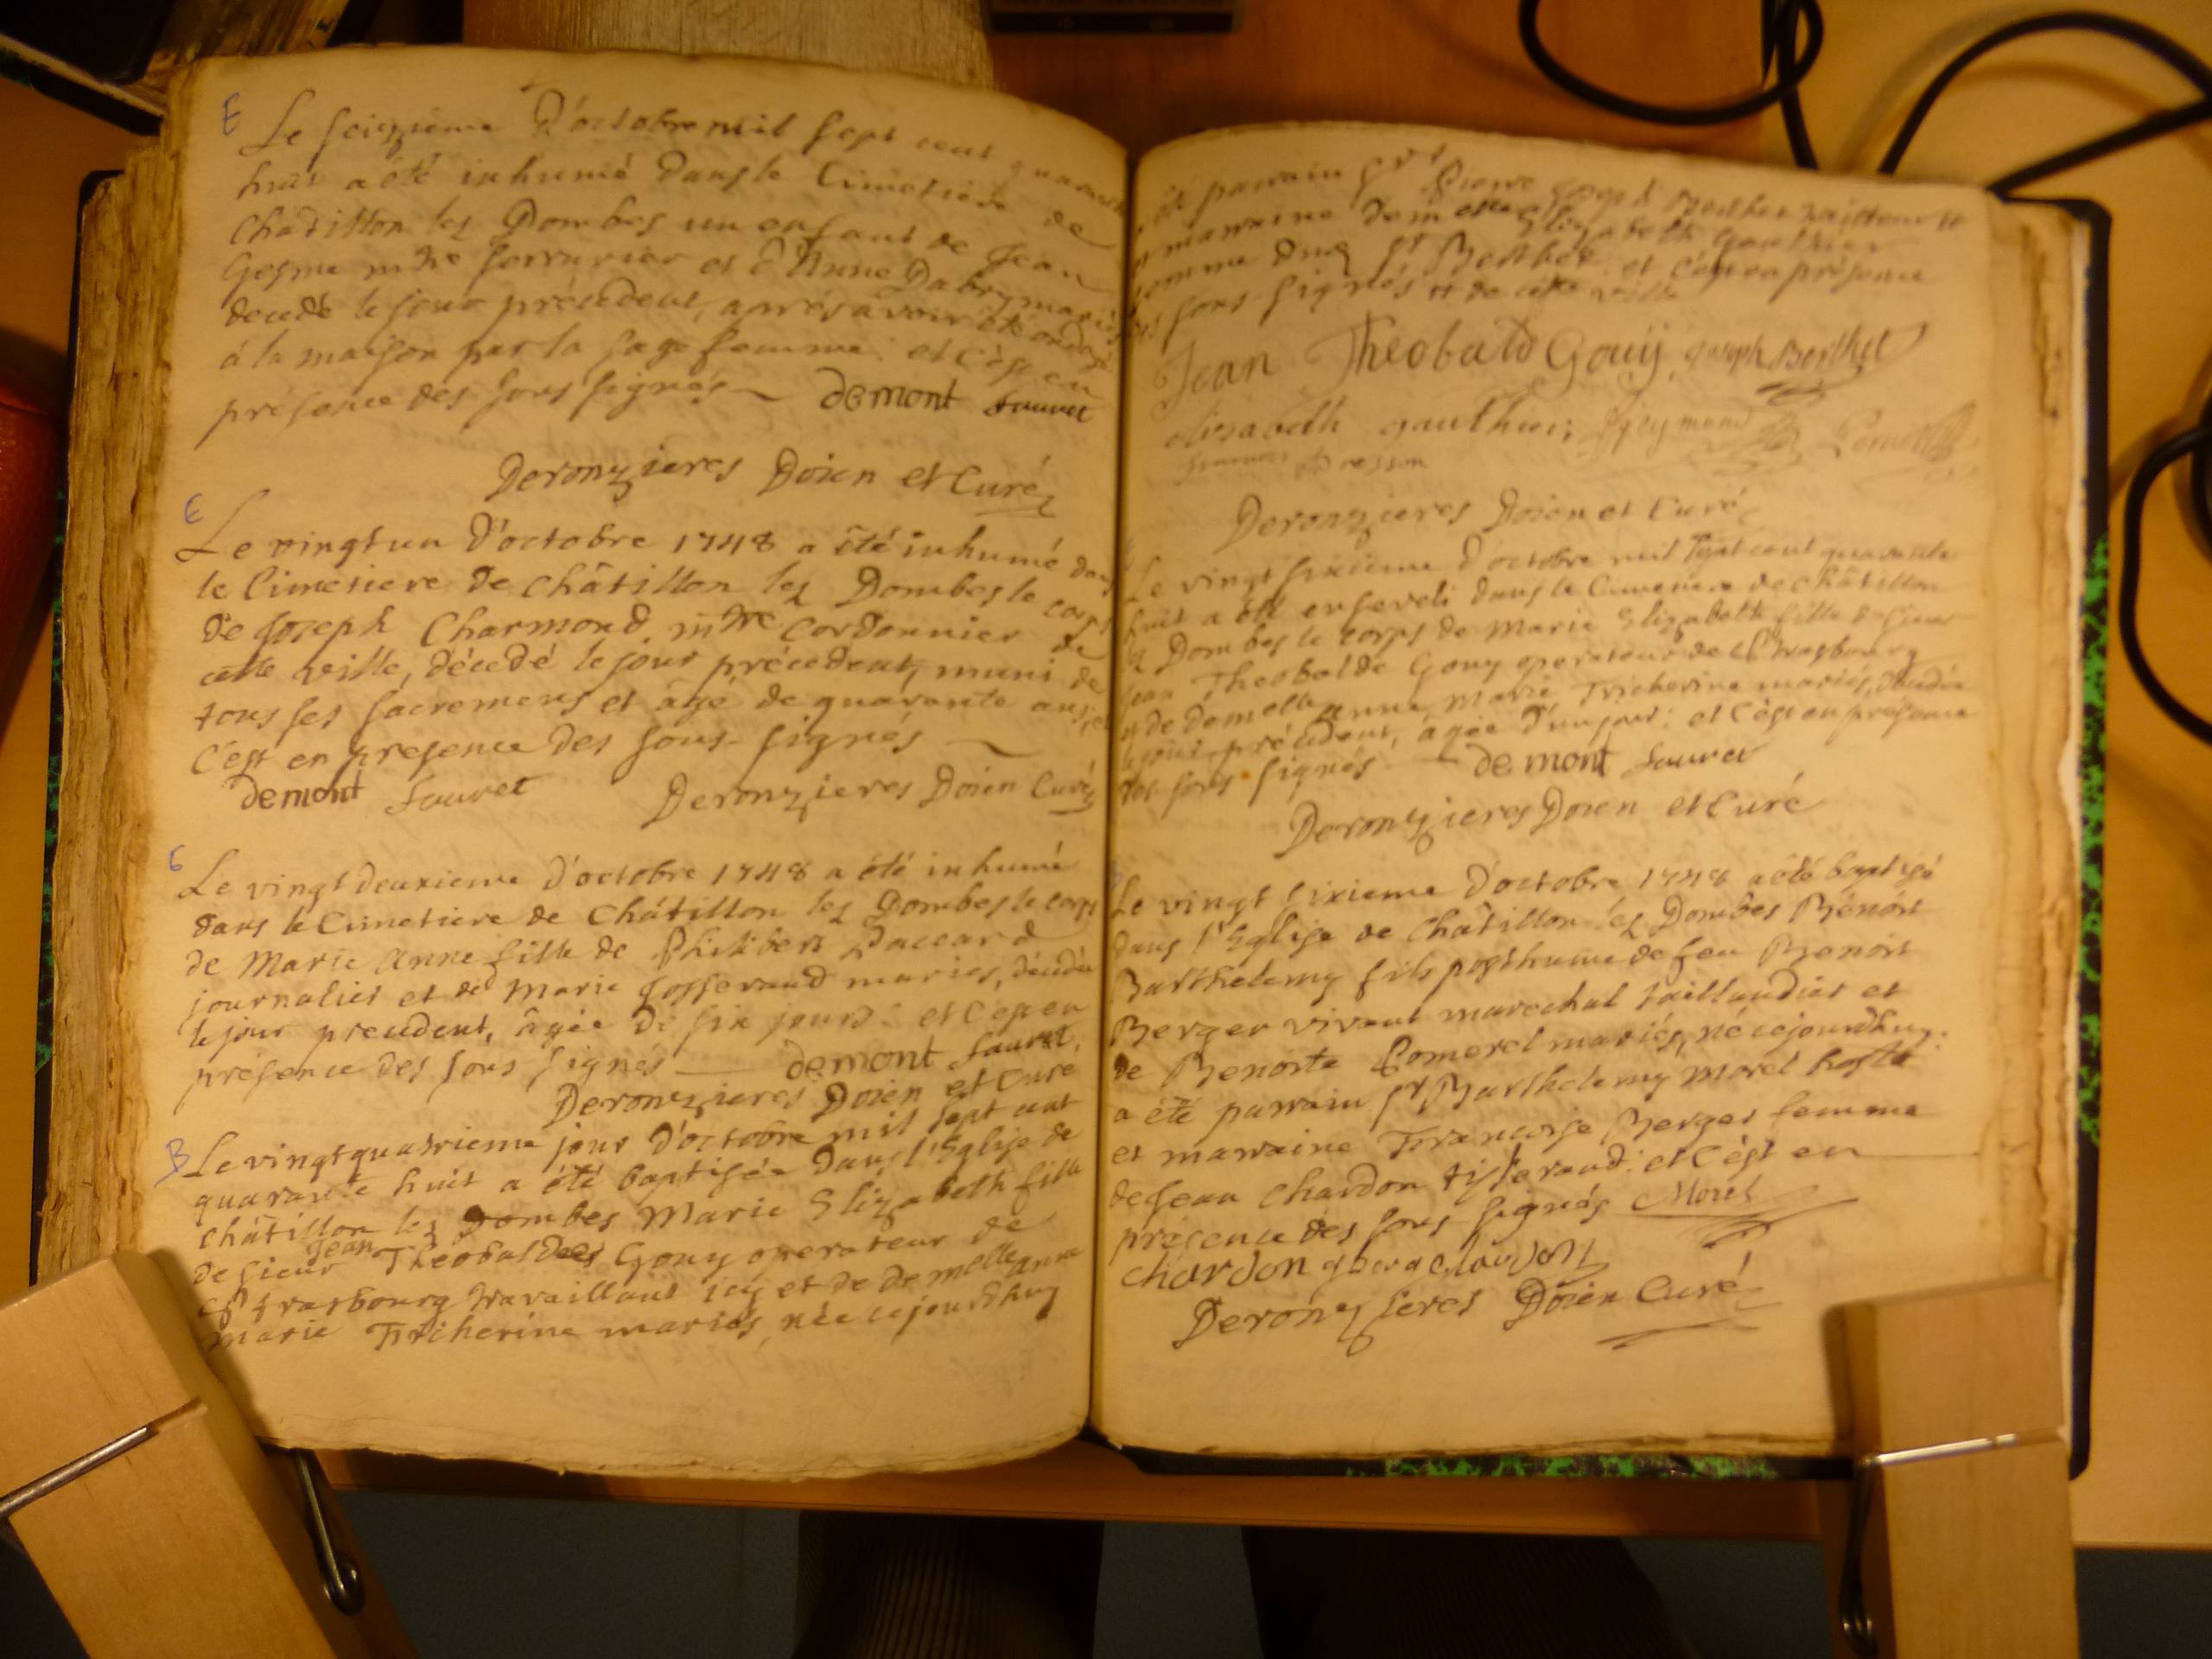 E
Le seizieme D'octobre mil sept cent quarante
huit a été inhumé dans le Cimetiere de
Châtillon les Dombes un enfant de Jean
Gesme mtre serrurier et d'Anne Dabry mariés
decedé le jour précedent, après avoir été ondoyé
à la maison par la sage femme: et c'est en
présence des sous signés demont Sauvet
Deronzieres Doien et Curé
E
Le vingt un D'octobre 1748 a été inhumé dans
le Cimetiere de Châtillon les Dombes le corps
de Joseph Charmond mtre Cordonnier de
cette ville, décedé le jour précedent, muni de
tous ses sacremens et âgé de quarante ans, et
c'est en presence des sous-signés
demont Sauvet Deronzieres Doien Curé
E
Le vingt deuxieme D'octobre 1748 a été inhumé
dans le Cimetiere de Châtillon les Dombes le corps
de Marie Anne fille de Philibert Paccard
journalier et de Marie Josserand mariés, décedée
le jour precedent, âgée de six jours: et c'est en
présence des sous signés demont Sauvet,
Deronzieres Doien et Curé
B
Le vingtquatrieme jour D'octobre mil sept cent
quarante huit a été baptisée dans l'Eglise de
Châtillon les Dombes Marie Elizabeth fille
de sieur Jean Theobalde Gouy operateur de
Strasbourg travaillant icy et de demelle anne
marie Tricherine mariés, née cejourdhuy
été parrain Sr Pierre Joseph Berthet
et marraine demelle Elizabeth Gauthier
femme dud Sr Berthet et c'est en présence
des sous-signés et de cette ville
Jean Theobald Gouÿ, Joseph Berthet
elisabeth gauthier;
Deronzieres Doien et Curé
Le vingt sixieme D'octobre mil sept cent quarante
huit a été enseveli dans le Cimetiere de Châtillon
les Dombes le corps de Marie Elizabeth fille de sieur
Jean Theobalde Gouy operateur de Strasbourg
et de demelle anne Marie Tricherine mariés, décedée
le jour précedent, âgée d'un jour: et c'est en présence
des sous-signés demont Sauvet
Deronzieres Doien et Curé
Le vingt sixieme D'octobre 1748 a été baptisé
dans l'Eglise de Châtillon les Dombes Bénoit
Barthelemy fils posthume de feu Benoit
Berger vivant marechal taillandier et
de Benoite Pomerel mariés, né cejourdhuy:
a été parrain Sr Barthelemy Morel hoste
et marraine Francoise Berger femme
de Jean Chardon tisserand: et c'est en
présence des sous-signés Morel
Chardon
Deronzieres Doien Curé